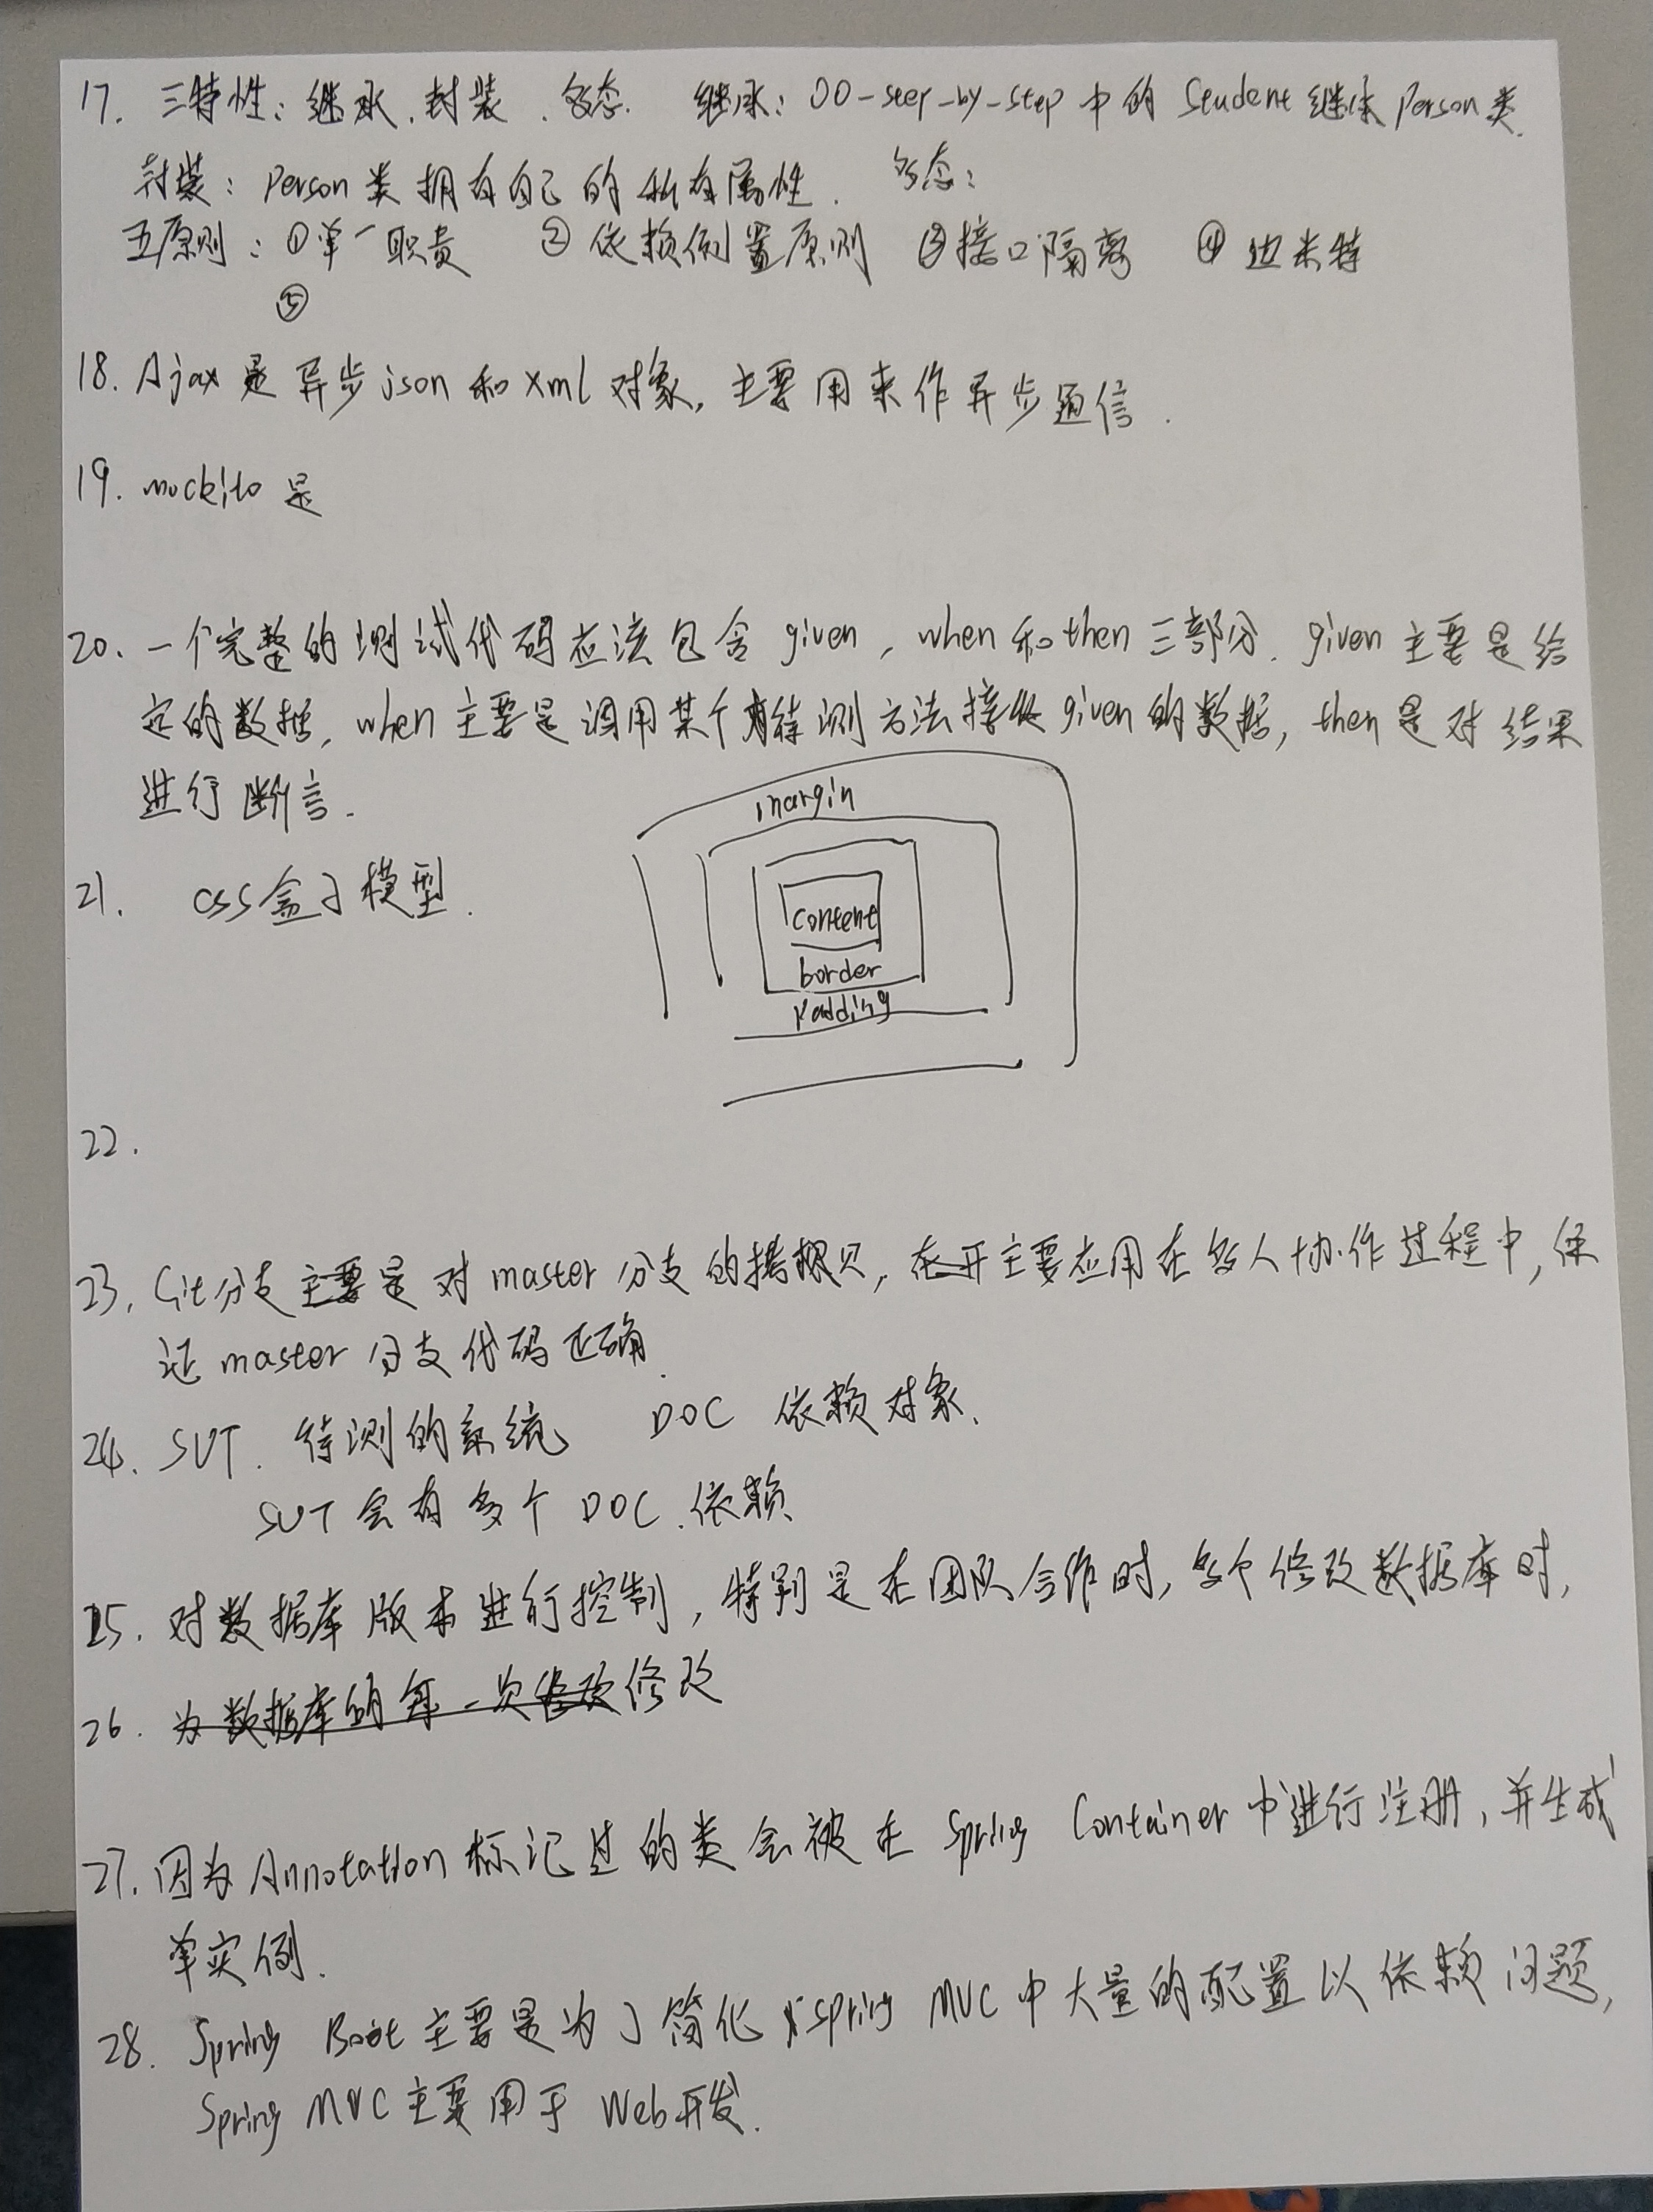 17. 三特性：继承、封装、多态. 继承：OO-step-by-step中的Student继承Person类.
封装：Person类拥有自己的私有属性. 多态：
五原则：①单一职责 ②依赖倒置原则 ③接口隔离 ④迪米特
⑤
18. Ajax是异步json和xml对象, 主要用来作异步通信.
19. mockito是
20. 一个完整的测试代码应该包含given, when和then三部分. given主要是给
定的数据, when主要是调用某个待测方法接收given的数据, then是对结果
进行断言.
margin
21. css盒子模型.
content
border
padding
22.
23. Git分支主要是对master分支的拷贝, 主要应用在多人协作过程中, 保
证master分支代码正确.
24. SUT. 待测的系统 DOC 依赖对象.
SUT会有多个DOC.依赖
25. 对数据库版本进行控制, 特别是在团队合作时, 多个修改数据库时,
26. 为数据库的每一次修改修改
27. 因为Annotation标记过的类会被在Spring Container中进行注册, 并生成
单实例.
28. Spring Boot主要是为了简化Spring MVC中大量的配置以依赖问题,
Spring MVC主要用于Web开发.